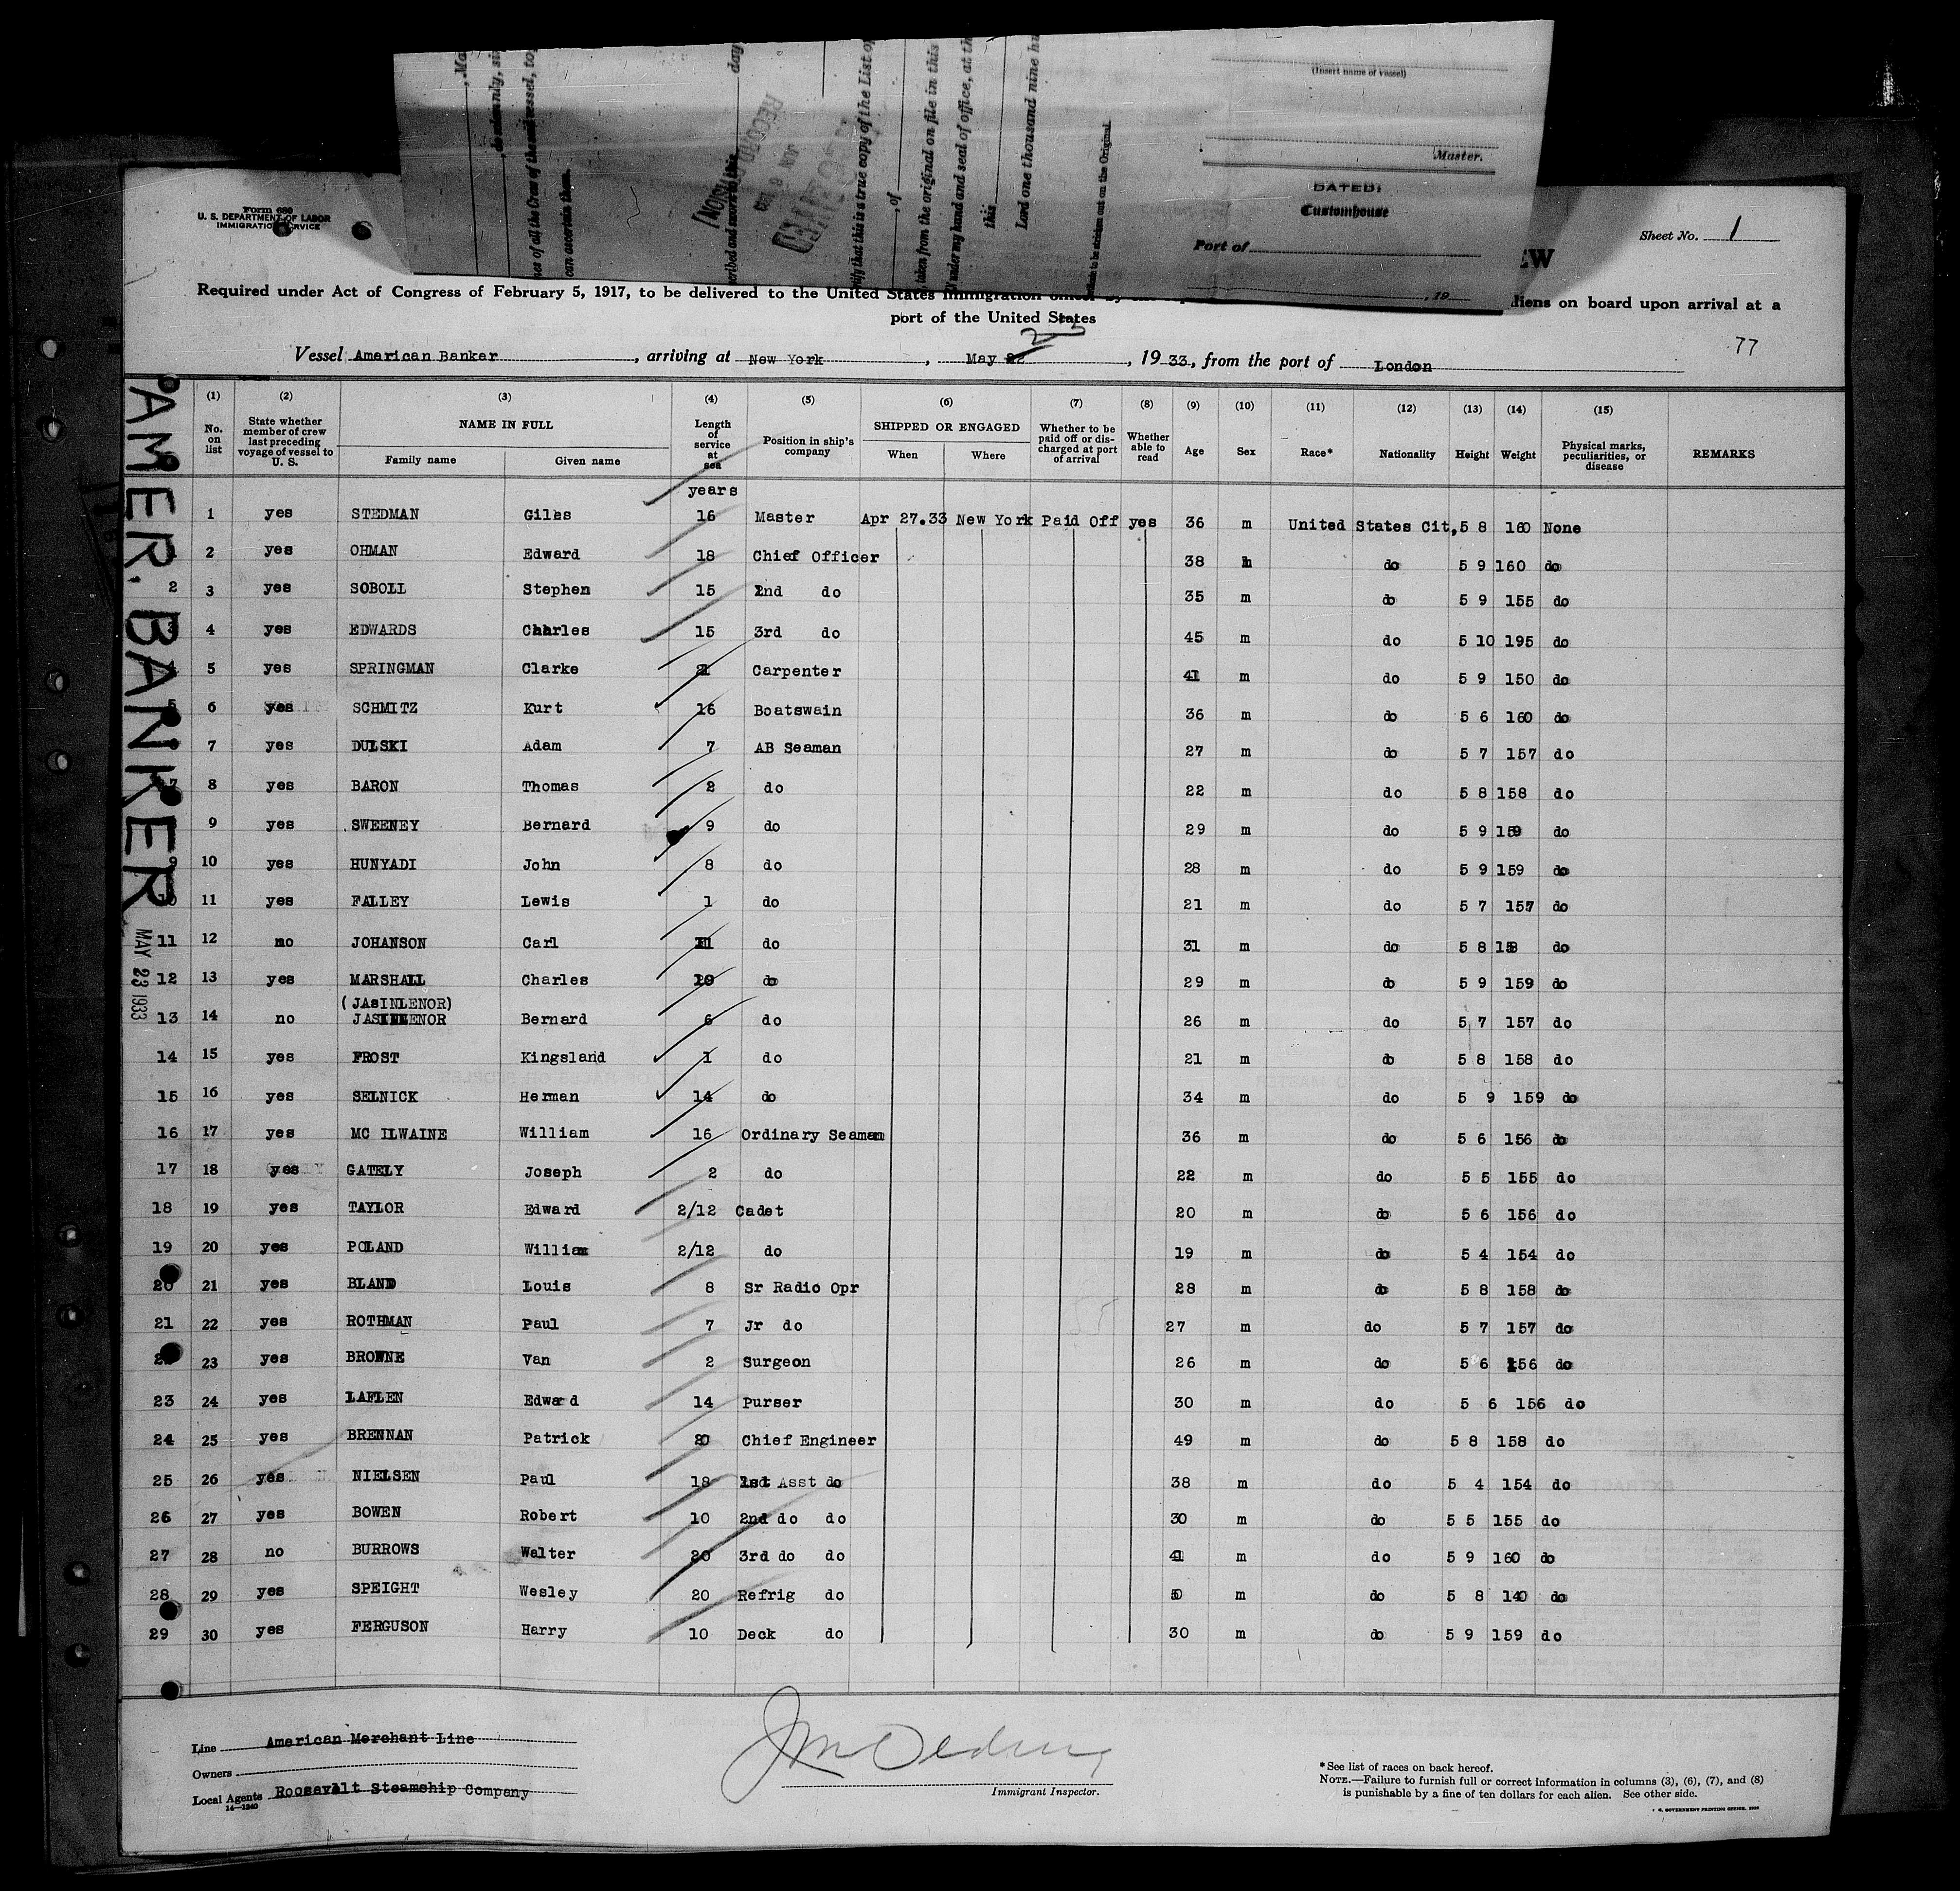 (Insert name of vessel)
Master.
DATED:
Customhouse
Port of
, 19
can ascertain them.
this
Lord one thousand nine hu
Form 680
U. S. DEPARTMENT OF LABOR
IMMIGRATION SERVICE
Sheet No. 1
EW
Required under Act of Congress of February 5, 1917, to be delivered to the United States immigration officer by liens on board upon arrival at a
port of the United States
Vessel American Banker, arriving at New York, May 23, 1933, from the port of London
77
AMER. BANKER
MAY 23 1933
(1) (2) (3) (4) (5) (6) (7) (8) (9) (10) (11) (12) (13) (14) (15)
No. on list State whether member of crew last preceding voyage of vessel to U. S. NAME IN FULL Length of service at sea Position in ship's company SHIPPED OR ENGAGED Whether to be paid off or discharged at port of arrival Whether able to read Age Sex Race* Nationality Height Weight Physical marks, peculiarities, or disease REMARKS
Family name Given name When Where
years
1 yes STEDMAN Giles 16 Master Apr 27.33 New York Paid Off yes 36 m United States Cit, 5 8 160 None
2 yes OHMAN Edward 18 Chief Officer 38 m do 5 9 160 do
2 3 yes SOBOLL Stephen 15 2nd do 35 m do 5 9 155 do
3 4 yes EDWARDS Charles 15 3rd do 45 m do 5 10 195 do
5 yes SPRINGMAN Clarke Carpenter 41 m do 5 9 150 do
5 6 yes SCHMITZ Kurt 16 Boatswain 36 m do 5 6 160 do
7 yes DULSKI Adam 7 AB Seaman 27 m do 5 7 157 do
7 8 yes BARON Thomas 2 do 22 m do 5 8 158 do
9 yes SWEENEY Bernard 9 do 29 m do 5 9 159 do
9 10 yes HUNYADI John 8 do 28 m do 5 9 159 do
10 11 yes FALLEY Lewis 1 do 21 m do 5 7 157 do
11 12 no JOHANSON Carl 11 do 31 m do 5 8 158 do
12 13 yes MARSHALL Charles 10 do 29 m do 5 9 159 do
(JASINLENOR)
13 14 no JASINLENOR Bernard 6 do 26 m do 5 7 157 do
14 15 yes FROST Kingsland 1 do 21 m do 5 8 158 do
15 16 yes SELNICK Herman 14 do 34 m do 5 9 159 do
16 17 yes MC ILWAINE William 16 Ordinary Seaman 36 m do 5 6 156 do
17 18 yes GATELY Joseph 2 do 22 m do 5 5 155 do
18 19 yes TAYLOR Edward 2/12 Cadet 20 m do 5 6 156 do
19 20 yes POLAND William 2/12 do 19 m do 5 4 154 do
20 21 yes BLAND Louis 8 Sr Radio Opr 28 m do 5 8 158 do
21 22 yes ROTHMAN Paul 7 Jr do 27 m do 5 7 157 do
23 yes BROWNE Van 2 Surgeon 26 m do 5 6 156 do
23 24 yes LAFLEN Edward 14 Purser 30 m do 5 6 156 do
24 25 yes BRENNAN Patrick 20 Chief Engineer 49 m do 5 8 158 do
25 26 yes NIELSEN Paul 18 1st Asst do 38 m do 5 4 154 do
26 27 yes BOWEN Robert 10 2nd do do 30 m do 5 5 155 do
27 28 no BURROWS Walter 20 3rd do do 41 m do 5 9 160 do
28 29 yes SPEIGHT Wesley 20 Refrig do 50 m do 5 8 140 do
29 30 yes FERGUSON Harry 10 Deck do 30 m do 5 9 159 do
Line American Merchant Line
Owners
Local Agents Roosevelt Steamship Company
14—1240
Immigrant Inspector.
*See list of races on back hereof.
NOTE.—Failure to furnish full or correct information in columns (3), (6), (7), and (8)
is punishable by a fine of ten dollars for each alien. See other side.